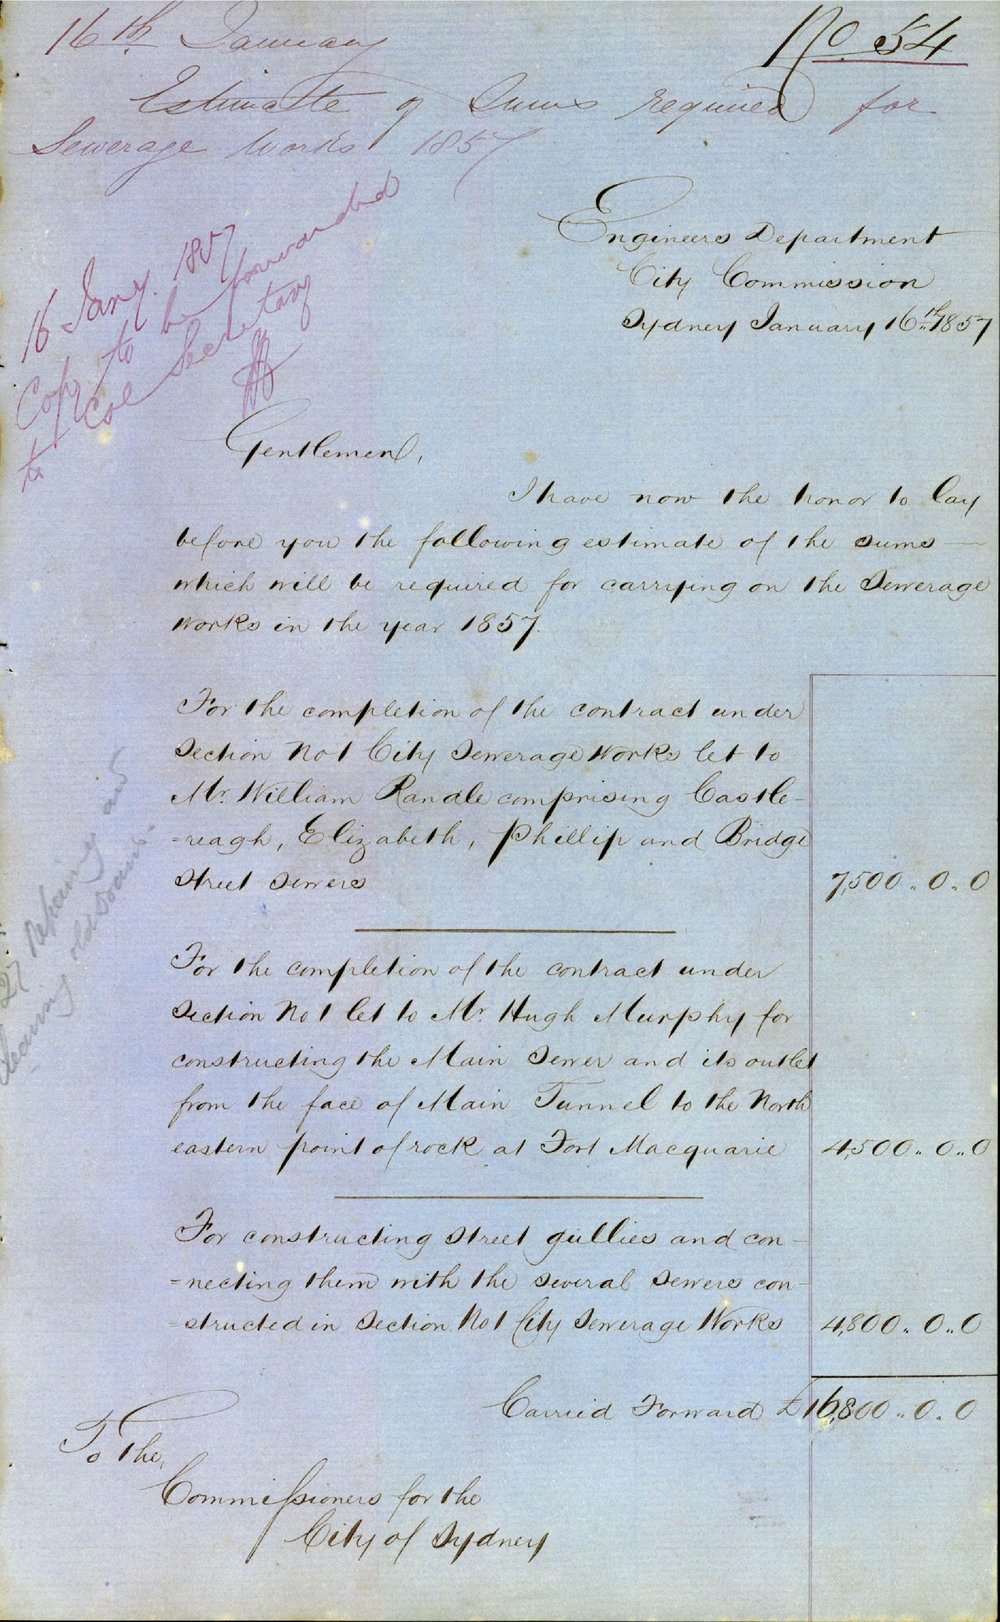 16th January
No. 54
Estimate of Sums required for
Sewerage Works 1857
16 Jany. 1857
Copy to be forwarded
to Col Secretary
Engineers Department
City Commission
Sydney January 16th 1857
Gentlemen,
I have now the honor to lay
before you the following estimate of the sums —
which will be required for carrying on the Sewerage
Works in the year 1857.
For the completion of the contract under
Section No 1 City Sewerage Works let to
Mr. William Randle comprising Castle-
=reagh, Elizabeth, Phillip and Bridge
Street Sewers 7,500 .. 0 .. 0
For the completion of the contract under
Section No 1 let to Mr. Hugh Murphy for
constructing the Main Sewer and its outlet
from the face of Main Tunnel to the North
eastern point of rock at Fort Macquarie 4,500 .. 0 .. 0
For constructing Street gullies and con-
=necting them with the several Sewers con-
=structed in Section No 1 City Sewerage Works 4,800 .. 0 .. 0
Carried Forward £ 16,800 .. 0 .. 0
27 Repairing and
cleaning old
To The,
Commissioners for the
City of Sydney